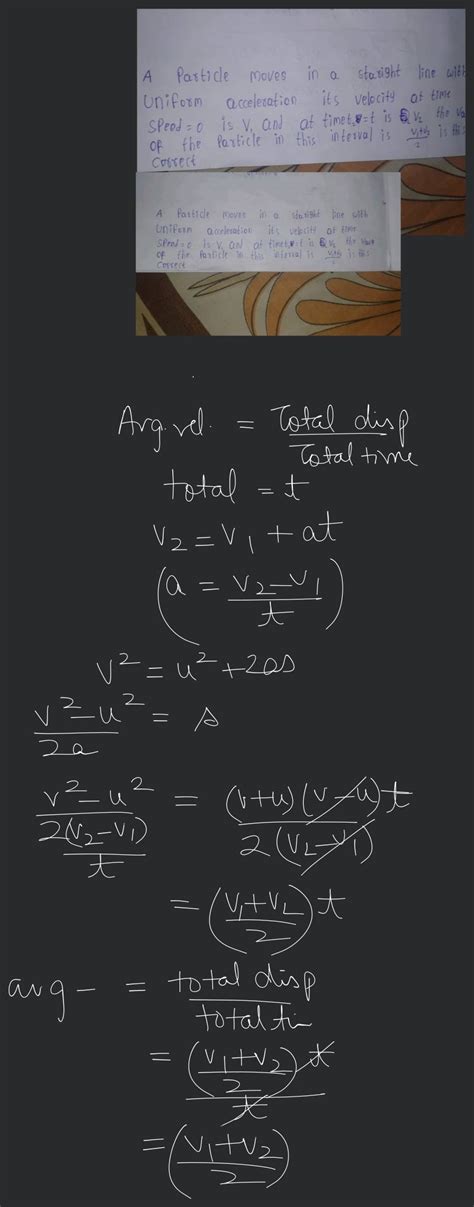 A Particle moves in a staright line with
Uniform acceleration its velocity at time
Speed = 0 is V, and at time t = t is V2 the
of the Particle in this interval is V1+V2/2 is this
Correct
A Particle moves in a staright line with
Uniform acceleration its velocity at time
Speed = 0 is V, and at time t = t is V2 the
of the Particle in this interval is V1+V2/2 is this
Correct
Avg. vel. = Total disp / Total time
total = t
V2 = V1 + at
(a = (V2 - V1) / t)
V² = u² + 2as
(V² - u²) / 2a = s
(V² - u²) / (2(V2 - V1) / t) = (V+u)(V-u)t / 2(V2 - V1)
= ((V1 + V2) / 2) t
avg - = total disp / total ti
= ((V1 + V2) / 2) t / t
= ((V1 + V2) / 2)